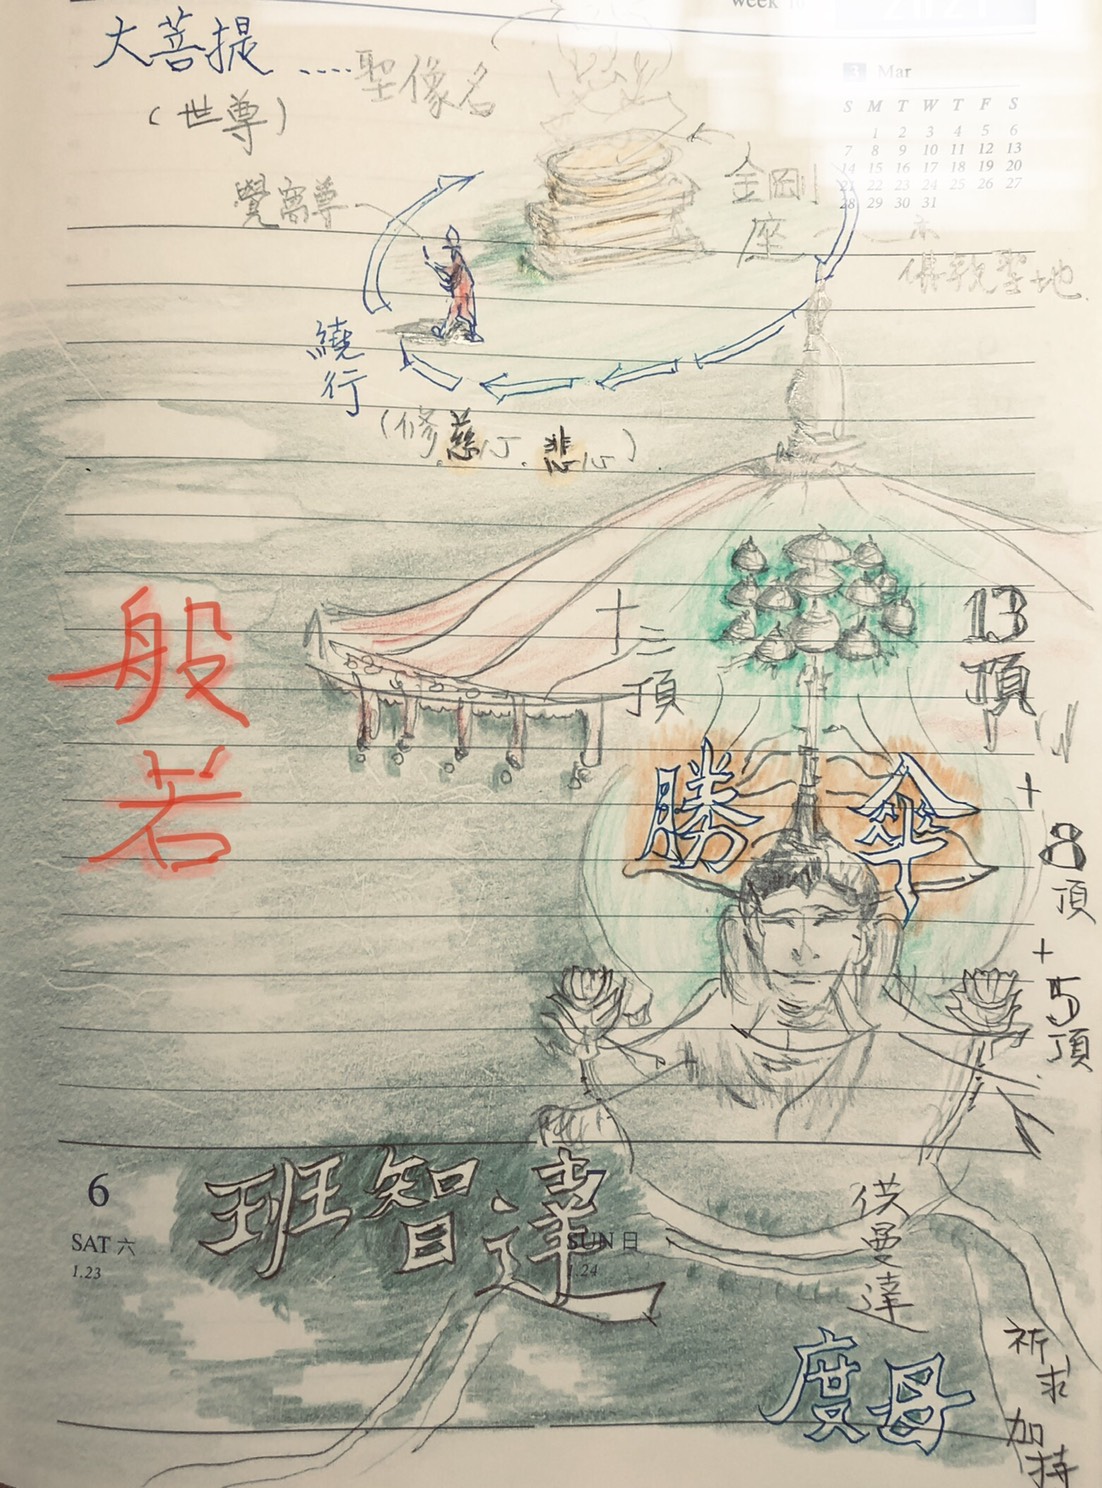 week
大菩提 ....聖像名
(世尊)
3 Mar
S M T W T F S
1 2 3 4 5 6
7 8 9 10 11 12 13
14 15 16 17 18 19 20
21 22 23 24 25 26 27
28 29 30 31
覺窩尊
金剛
座
聖地
繞
行
(修慈心.悲心)
般
若
十
三
頂
13
頂
+
8
頂
+
5
頂
勝 傘
6
班智達
SAT 六
1.23
SUN 日
1.24
供
曼
達
度母
祈
求
加
持